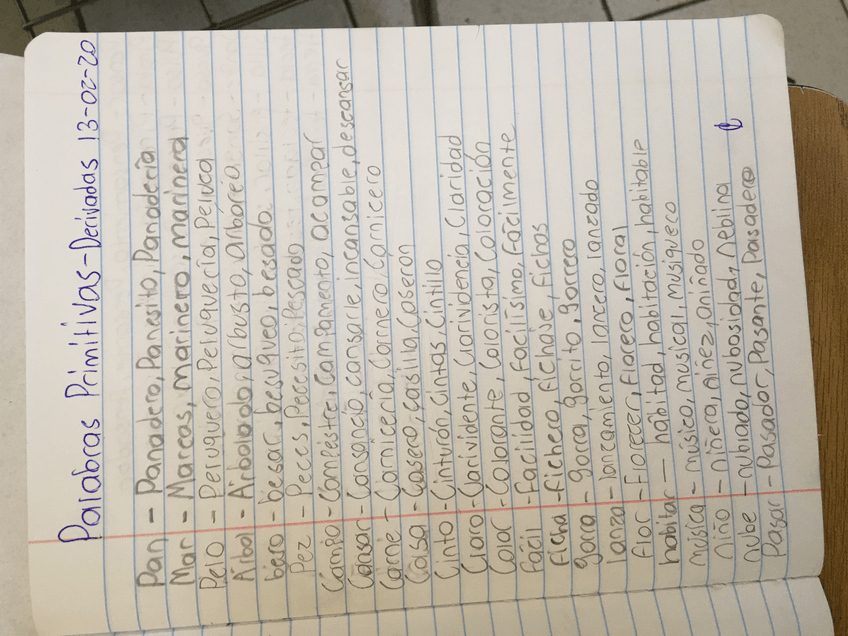 Palabras Primitivas-Derivadas 13-02-20
Pan - Panadero, Panesito, Panadería
Mar - Mareas, marinero, marinera
Pelo - Peluquero, Peluquería, Peluca
Árbol - Arbolado, arbusto, arbórea
beso - besar, besuqueo, besado
Pez - Peces, Pececito, Pescado
Campo - Campestre, Campamento, acampar
Cansar - Cansancio, cansarie, incansable, descansar
Carne - Carnicería, Carnero, Carnicero
Caisa - Casero, casilla, Caseron
Cinto - Cinturón, Cintas, Cintillo
Claro - Clarividente, Clarividencia, Claridad
Color - Colorante, Colorista, Coloración
fácil - Facilidad, Facilísmo, Fácilmente
ficha - fichero, fichaje, fichas
gorra - gorra, gorrito, gorrero
lanza - lanzamiento, lancero, lanzado
flor - Florecer, florero, floral
habitar - habitad, habitación, habitable
música - músico, musical, musiqueco
niño - niñera, niñez, aniñado
nube - nublado, nubosidad, neblina
Pasar - Pasador, Pasante, Pasadero